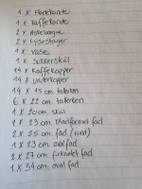 1 x Flødekande
1 x Kaffekande
2 x Askebægre
2 x Lysestager
1 x Vase
1 x Sukkerskål
14 x Kaffekopper
14 x Underkopper
14 x 15 cm tallerken
6 x 22 cm tallerken
1 x 20 cm skål
1 x 23 cm bladformet fad
2 x 25 cm fad (rund)
1 x 23 cm oval fad
2 x 27 cm firkantet fad
1 x 34 cm oval fad